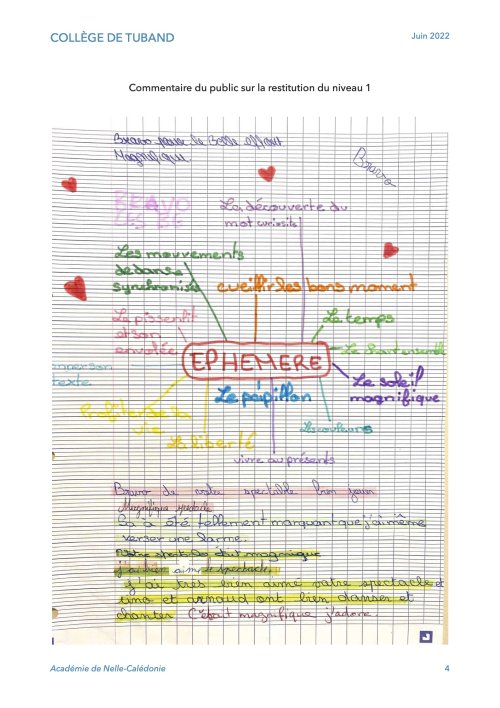 COLLÈGE DE TUBAND
Juin 2022
Commentaire du public sur la restitution du niveau 1
Bravo pour le Belle effort
Magnifique.
Bravo
BRAVO
LES DE
La découverte du
mot curiosité!
Les mouvements
de danse
synchronisé
cueillir les bons moment
Le pissenlit
et son
envolée
Le temps
Le chant ensemble
EPHEMERE
texte.
Le soleil
magnifique
Le papillon
Profiter de sa
vie.
La liberté
Les couleurs
vivre au présents
Bravo de votre spectable bien jouer
Magnifique spectacle
Ca a été tellement marquant que j'ai même
verser une larme.
j'ai bien aimé spectacle,
j'ai très bien aimé votre spectacle et
uma et arnaud ont bien danser et
chanter C'était magnifique j'adore.
J
Académie de Nelle-Calédonie
4